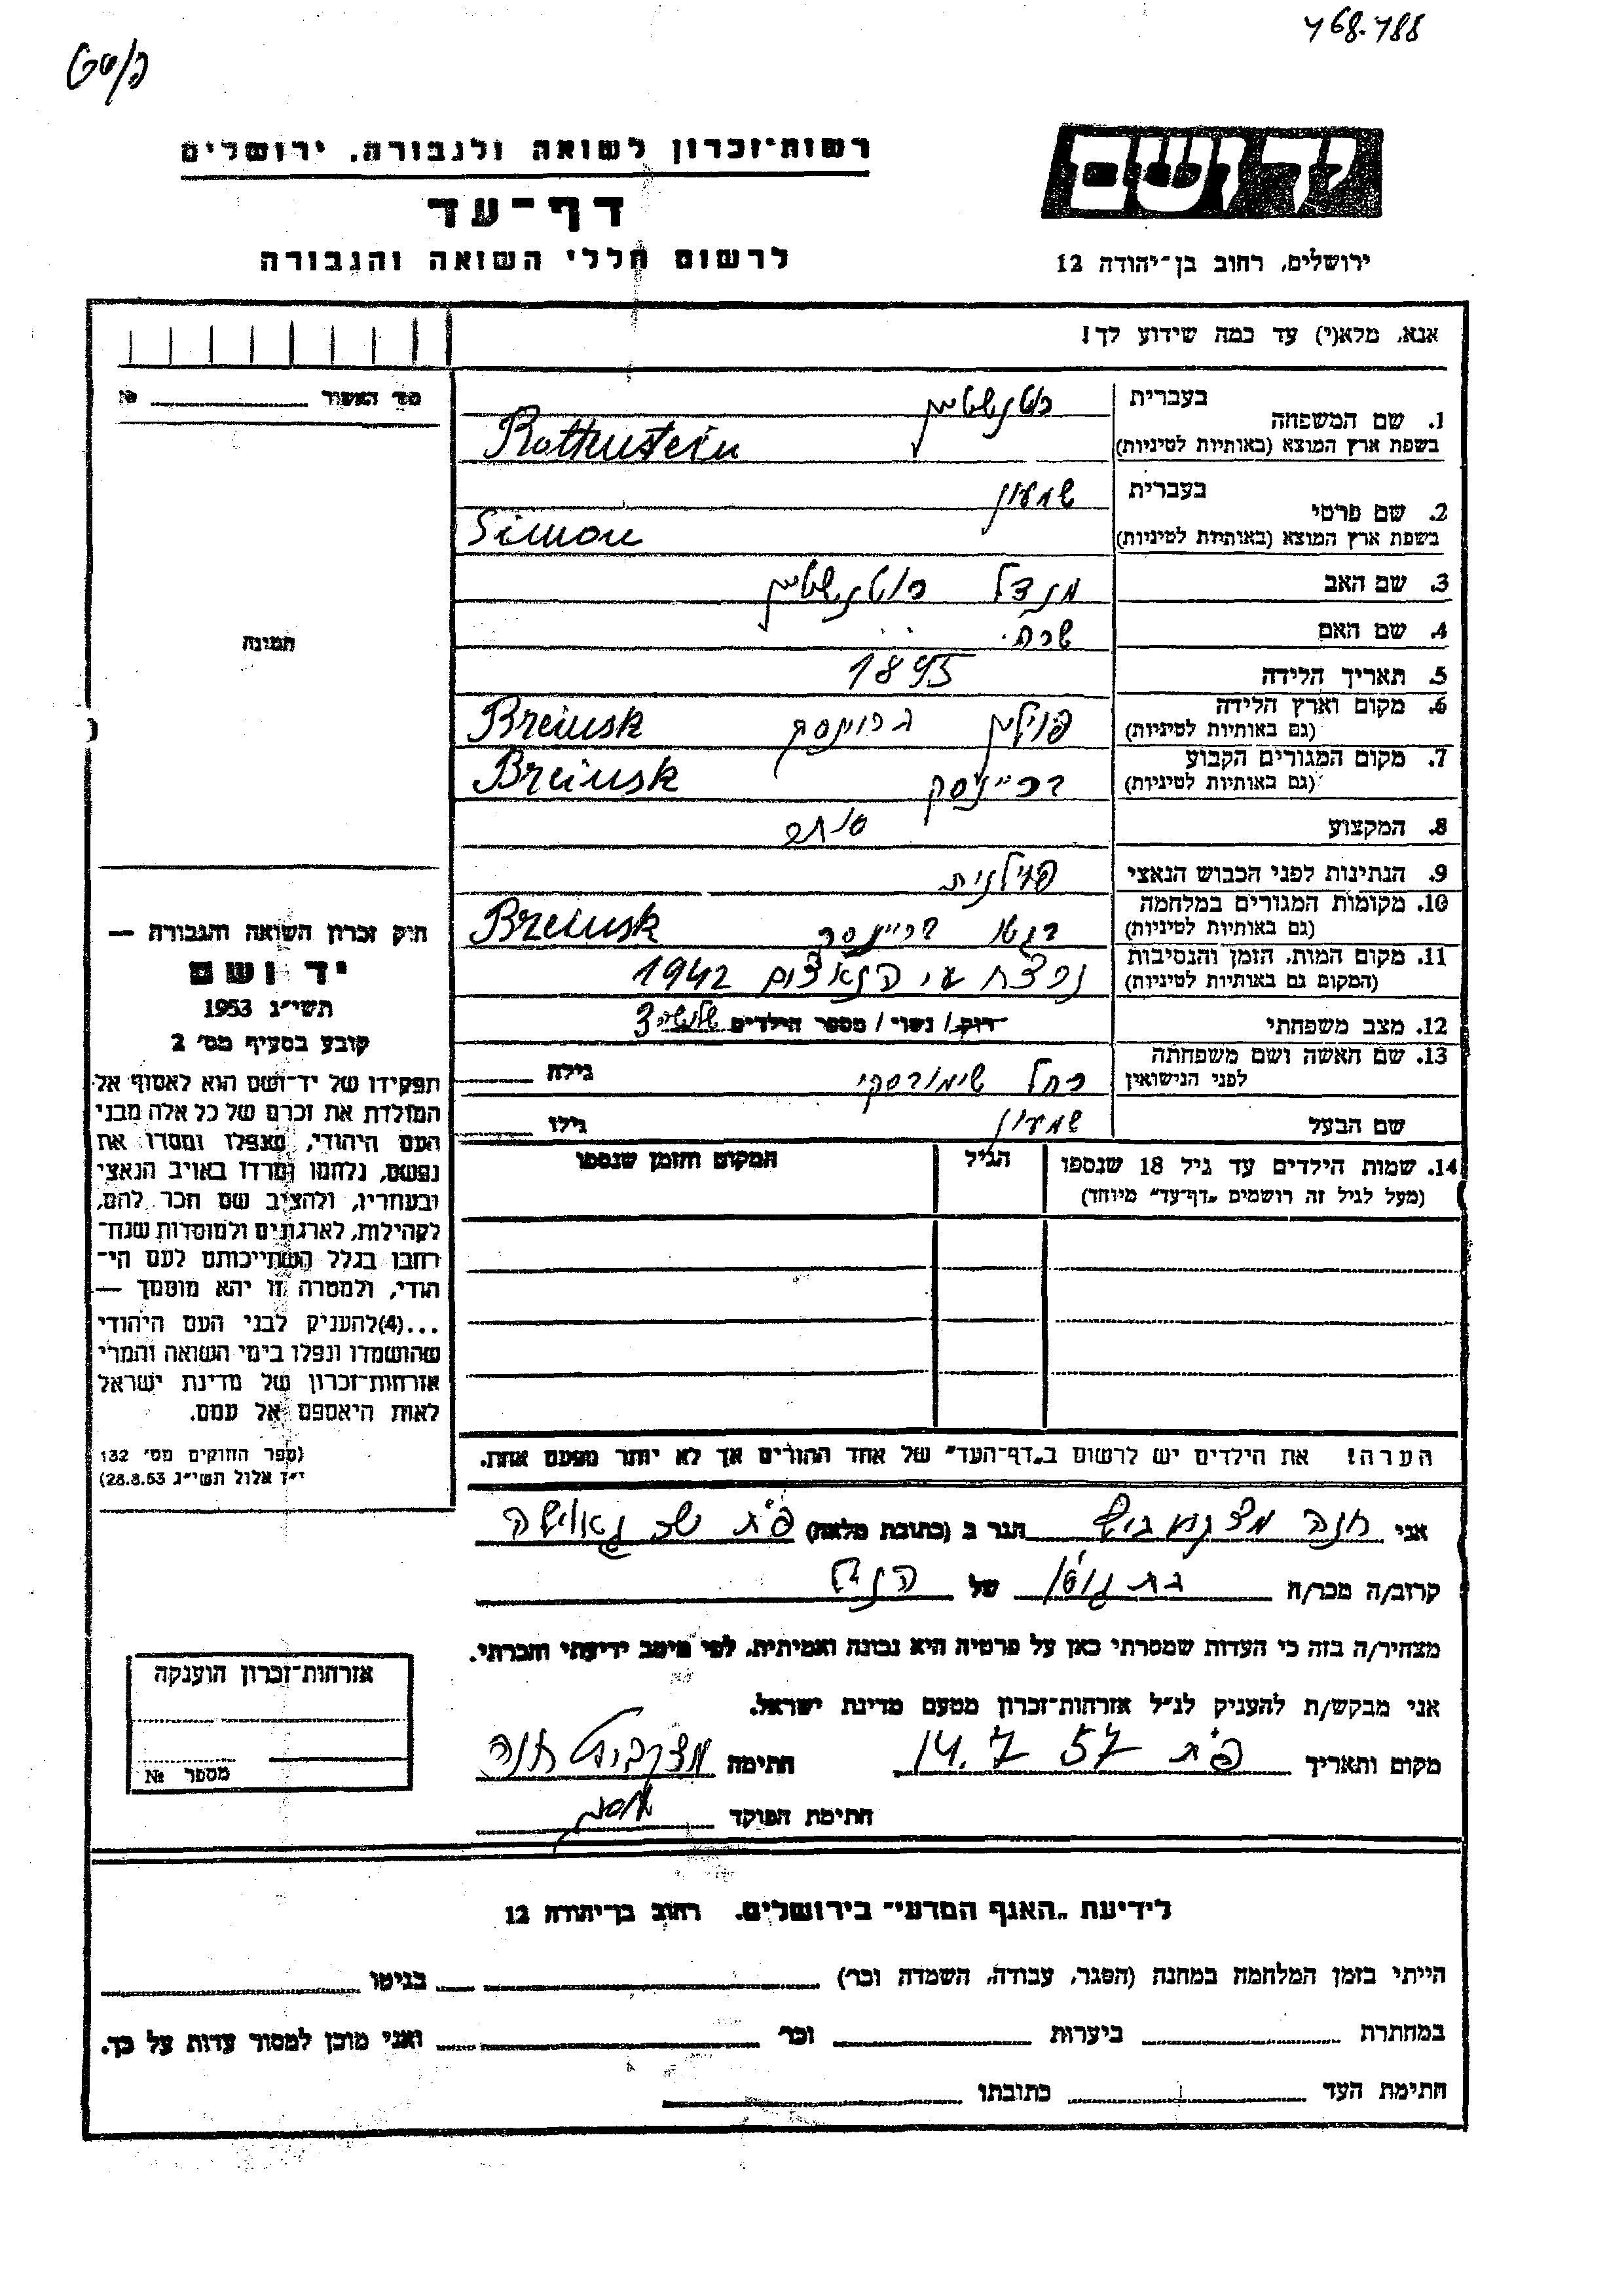 רשות־זכרון לשואה ולגבורה, ירושלים
דף־עד
לרשום חללי השואה והגבורה
יד ושם
ירושלים, רחוב בן־יהודה 12
אנא, מלא(י) עד כמה שידוע לך!
מס׳ האשור № 
תמונה
1. שם המשפחה בעברית רוטנשטיין
בשפת ארץ המוצא (באותיות לטיניות) Rottenstein
2. שם פרטי בעברית שמעון
בשפת ארץ המוצא (באותיות לטיניות) Simon
3. שם האב מנדל רוטנשטיין
4. שם האם שרה
5. תאריך הלידה 1895
6. מקום וארץ הלידה (גם באותיות לטיניות) פולין Breiusk
7. מקום המגורים הקבוע (גם באותיות לטיניות) Breiusk
8. המקצוע
9. הנתינות לפני הכבוש הנאצי פולנית
10. מקומות המגורים במלחמה (גם באותיות לטיניות) Breiusk
11. מקום המות, הזמן והנסיבות (המקום גם באותיות לטיניות) נרצח ע״י הנאצים 1942
12. מצב משפחתי רוק/ נשוי/ מספר הילדים 3
13. שם האשה ושם משפחתה לפני הנישואין רחל גילה
שם הבעל שמעון גילו
14. שמות הילדים עד גיל 18 שנספו (מעל לגיל זה רושמים „דף־עד״ מיוחד) הגיל המקום והזמן שנספו
הערה! את הילדים יש לרשום ב„דף־העד״ של אחד ההורים אך לא יותר מפעם אחת.
חוק זכרון השואה והגבורה —
יד ושם
תשי״ג 1953
קובע בסעיף מס׳ 2
תפקידו של יד־ושם הוא לאסוף אל
המולדת את זכרם של כל אלה מבני
העם היהודי, שנפלו ומסרו את
נפשם, נלחמו ומרדו באויב הנאצי
ובעוזריו, ולהציב שם וזכר להם,
לקהילות, לארגונים ולמוסדות שנח־
רבו בגלל השתייכותם לעם הי־
הודי, ולמטרה זו יהא מוסמך —
...(4) להעניק לבני העם היהודי
שהושמדו ונפלו בימי השואה והמרי
אזרחות־זכרון של מדינת ישראל
לאות היאספם אל עמם.
(ספר החוקים מס׳ 132
י״ד אלול תשי״ג 28.8.53)
אני חנה הגר ב (כתובת מלאה) פ״ת
קרוב/ה מכר/ה בת של הנ״ל
מצהיר/ה בזה כי העדות שמסרתי כאן על פרטיה היא נכונה ואמיתית, לפי מיטב ידיעתי והכרתי.
אני מבקש/ת להעניק לנ״ל אזרחות־זכרון מטעם מדינת ישראל.
מקום ותאריך פ״ת 14.7 57 חתימה חנה
חתימת הפוקד
אזרחות־זכרון הוענקה
מספר №
לידיעת „האגף המדעי״ בירושלים, רחוב בן־יהודה 12
הייתי בזמן המלחמה במחנה (הסגר, עבודה, השמדה וכו׳) בגיטו
במחתרת ביערות וכו׳ ואני מוכן למסור עדות על כך.
חתימת העד כתובתו